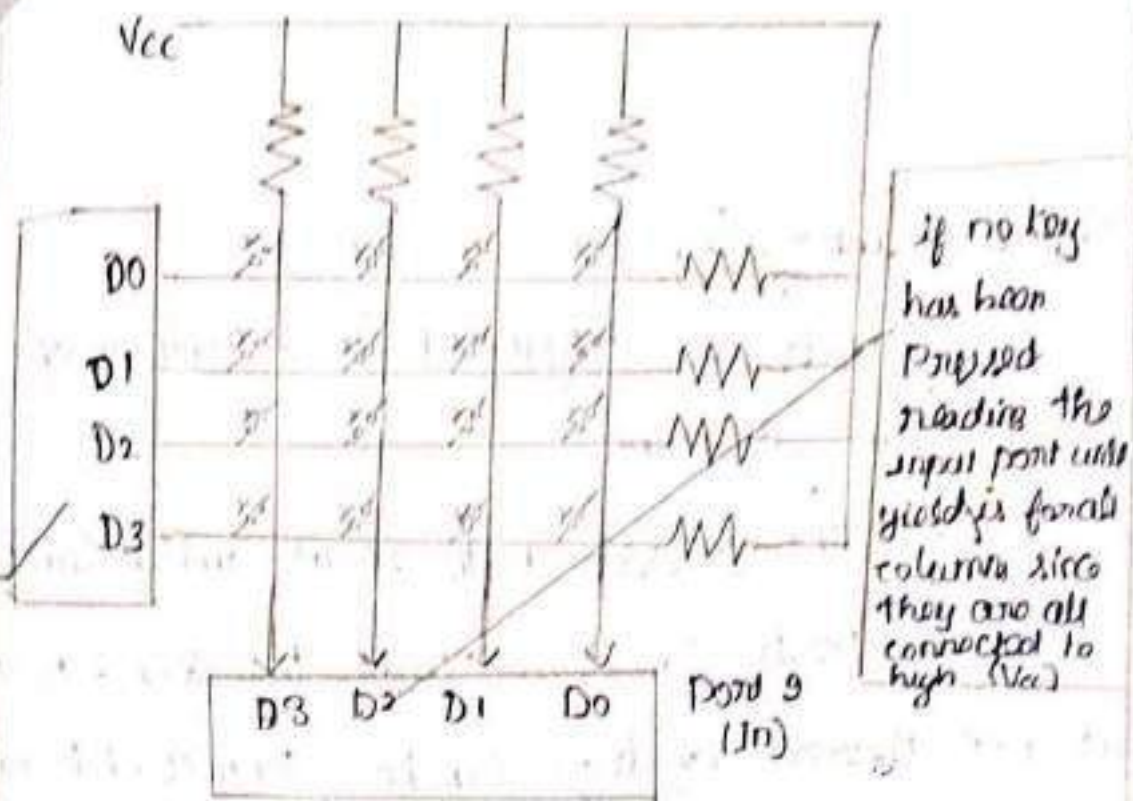 Vcc
D0
D1
D2
D3
D3 D2 D1 D0
(In)
if no key
has been
Pressed
reading the
input port will
for all
column since
they are all
connected to
high (Vcc)